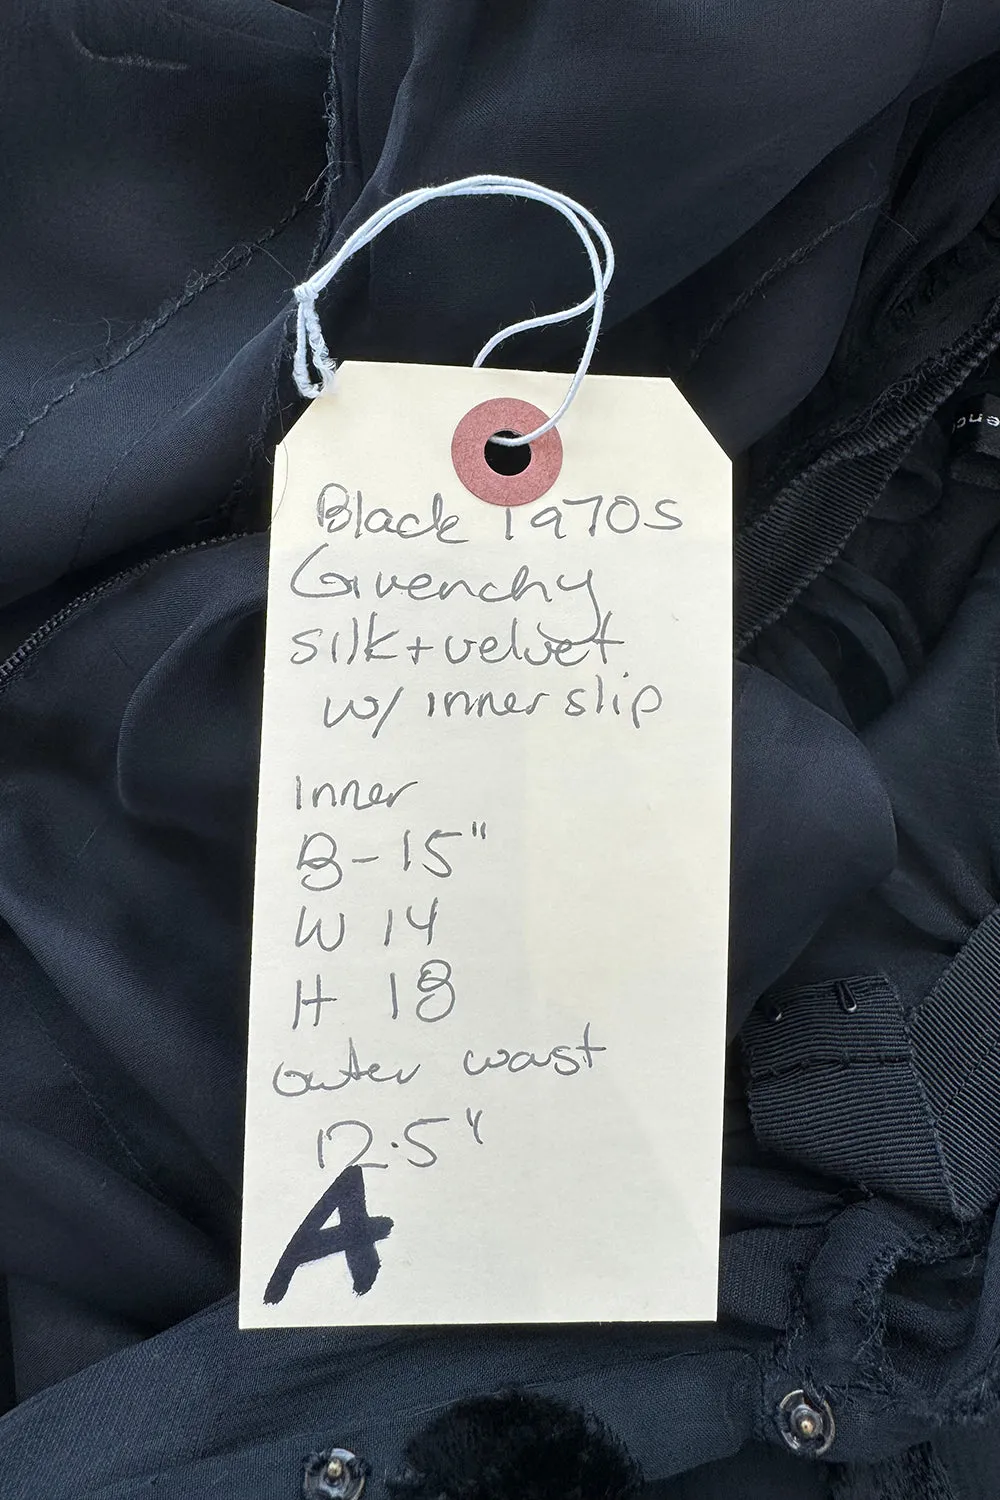 Black 1970s
Givenchy
silk + velvet
w/ inner slip
Inner
B - 15"
W 14
H 18
outer waist
12.5"
A